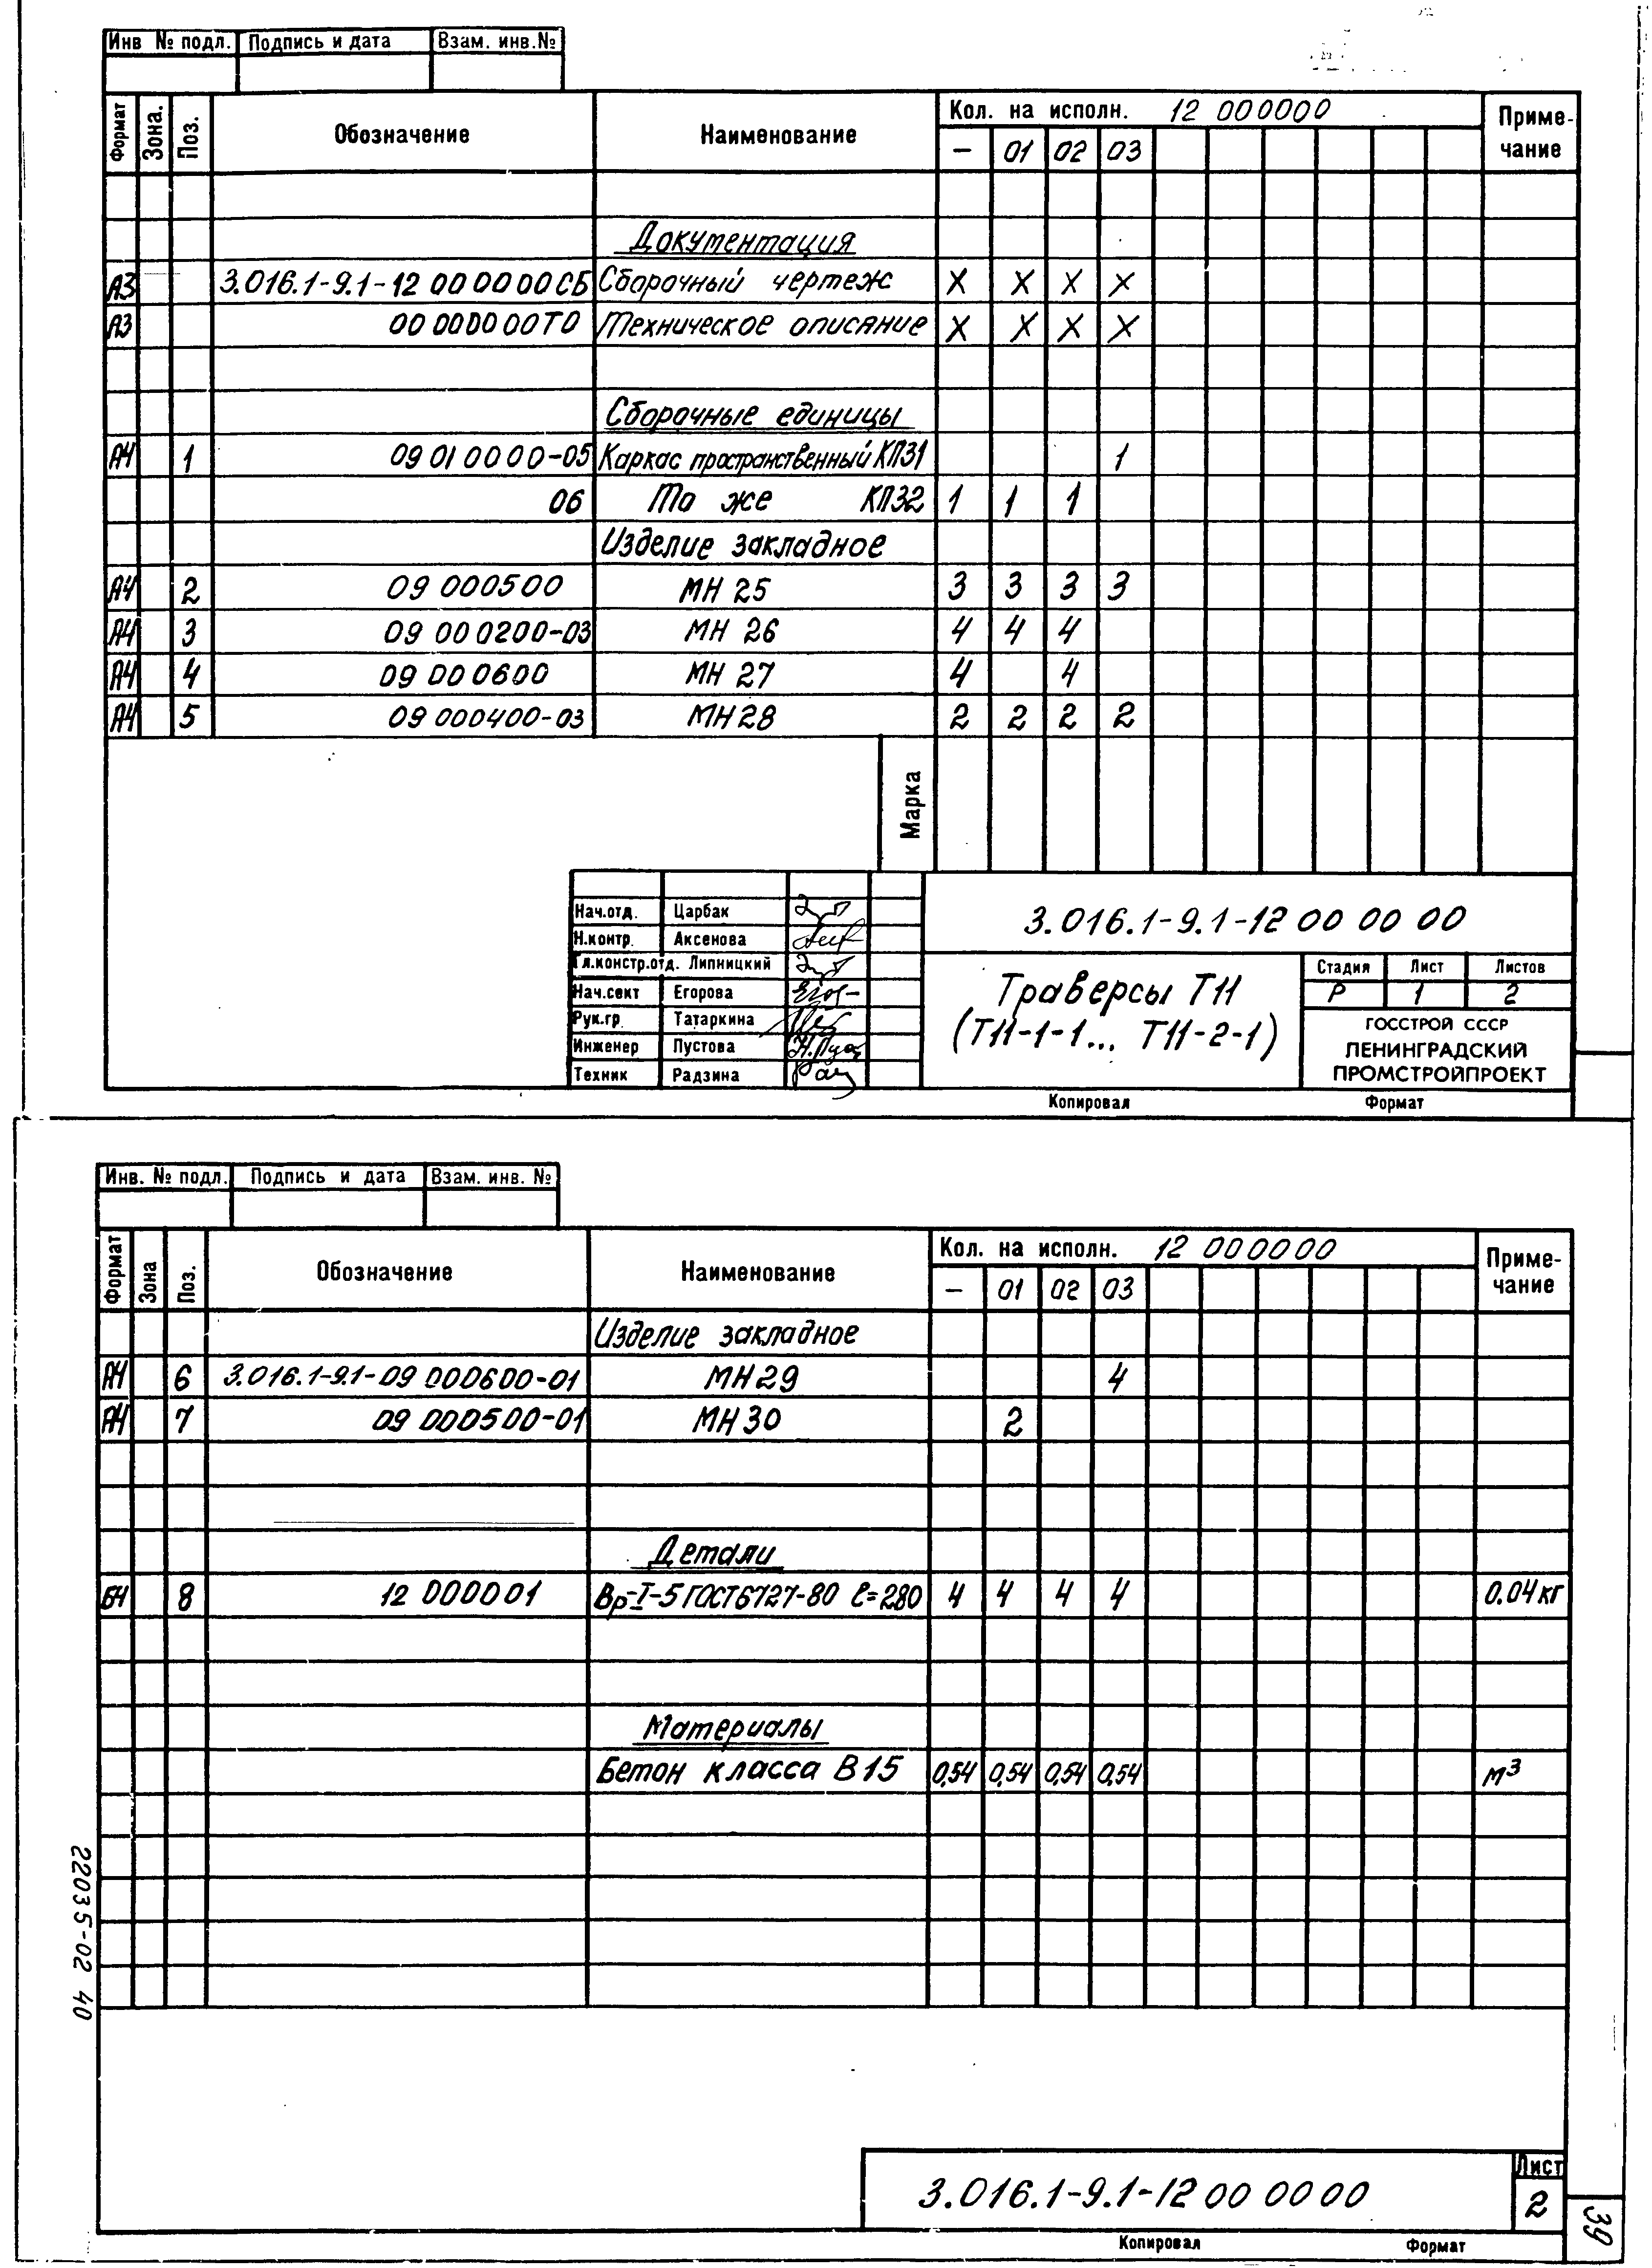 Инв № подл. Подпись и дата Взам. инв.№
Формат Зона. Поз. Обозначение Наименование Кол. на исполн. 12 000000 Приме-чание
– 01 02 03
Документация
А3 3.016.1-9.1-12 00 00 00 СБ Сборочный чертеж X X X X
А3 00 00 00 00 ТО Техническое описание X X X X
Сборочные единицы
А4 1 09 01 00 00-05 Каркас пространственный КП31 1
06 То же КП32 1 1 1
Изделие закладное
А4 2 09 000500 МН 25 3 3 3 3
А4 3 09 00 0200-03 МН 26 4 4 4
А4 4 09 00 0600 МН 27 4 4
А4 5 09 000400-03 МН28 2 2 2 2
Марка
3.016.1-9.1-12 00 00 00
Нач.отд. Царбак
Н.контр. Аксенова
Гл.констр.отд. Липницкий
Нач.сект Егорова
Рук.гр. Татаркина
Инженер Пустова
Техник Радзина
Траверсы Т11
(Т11-1-1... Т11-2-1)
Стадия Лист Листов
Р 1 2
ГОССТРОЙ СССР
ЛЕНИНГРАДСКИЙ
ПРОМСТРОЙПРОЕКТ
Копировал Формат
Инв. № подл. Подпись и дата Взам. инв. №
Формат Зона Поз. Обозначение Наименование Кол. на исполн. 12 000000 Приме-чание
– 01 02 03
Изделие закладное
А4 6 3.016.1-9.1-09 000600-01 МН29 4
А4 7 09 000500-01 МН30 2
Детали
Б4 8 12 000001 Вр-I-5 ГОСТ6727-80 ℓ=280 4 4 4 4 0.04кг
Материалы
Бетон класса В15 0,54 0,54 0,54 0,54 м³
22035-02 40
3.016.1-9.1-12 00 00 00
Лист
2
39
Копировал Формат